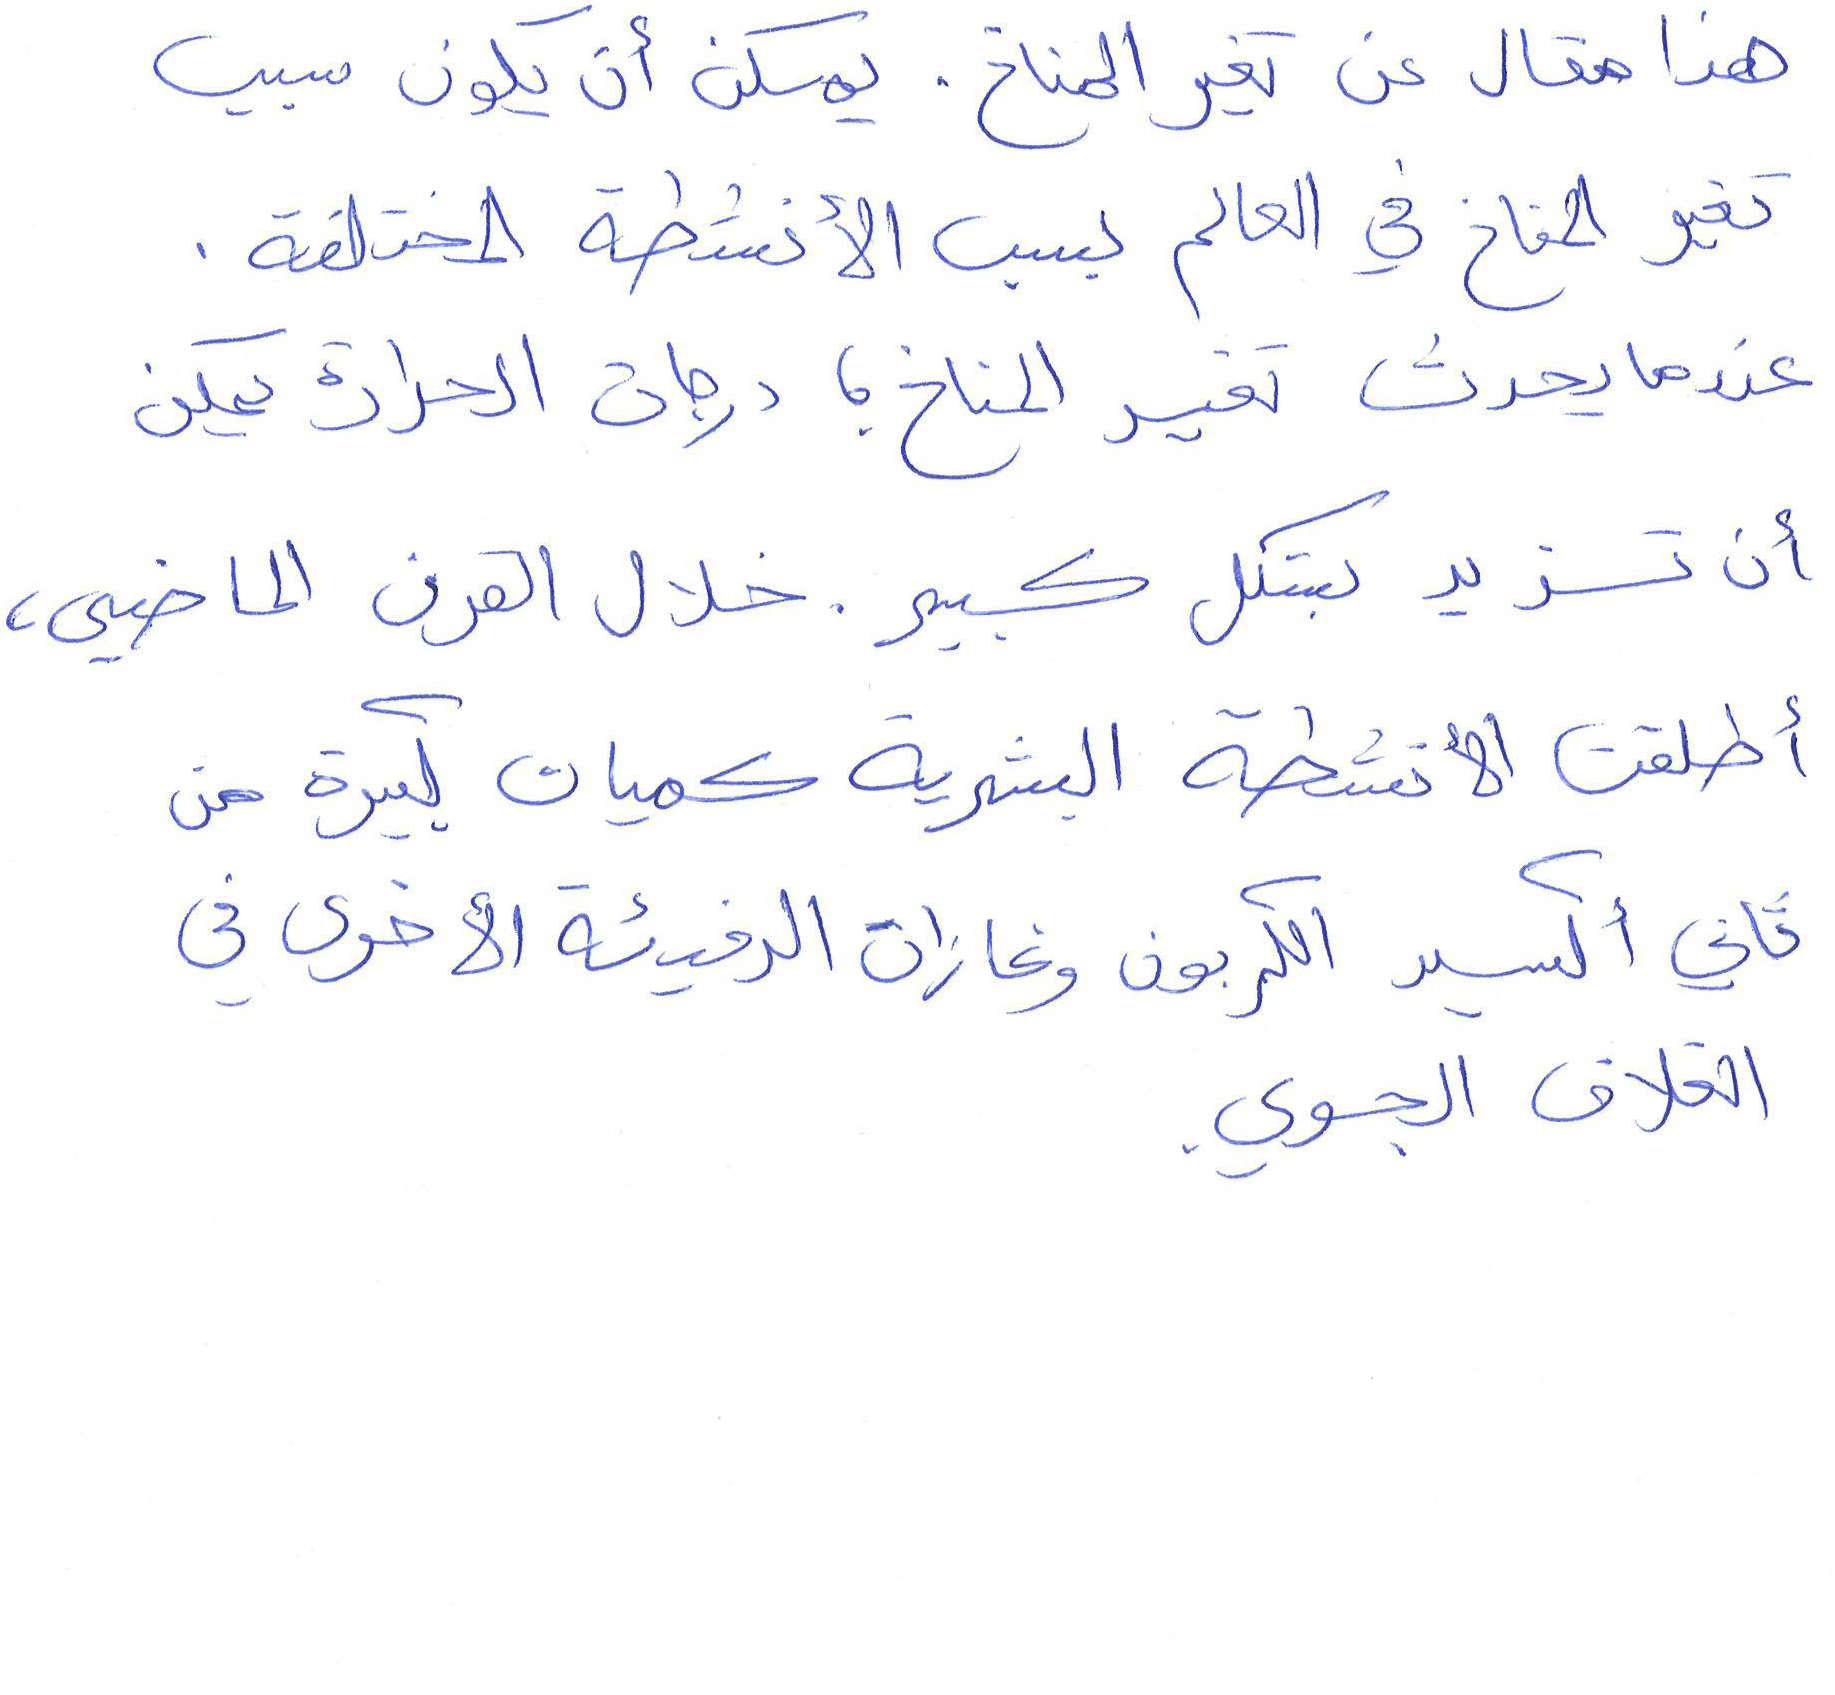 هذا مقال عن تغير المناخ. يمكن أن يكون سبب
تغير المناخ في العالم بسبب الأنشطة المختلفة.
عندما يحدث تغير المناخ، درجات الحرارة يمكن
أن تزيد بشكل كبير. خلال القرن الماضي،
أطلقت الأنشطة البشرية كميات كبيرة من
ثاني أكسيد الكربون وغازات الدفيئة الأخرى في
الغلاف الجوي.